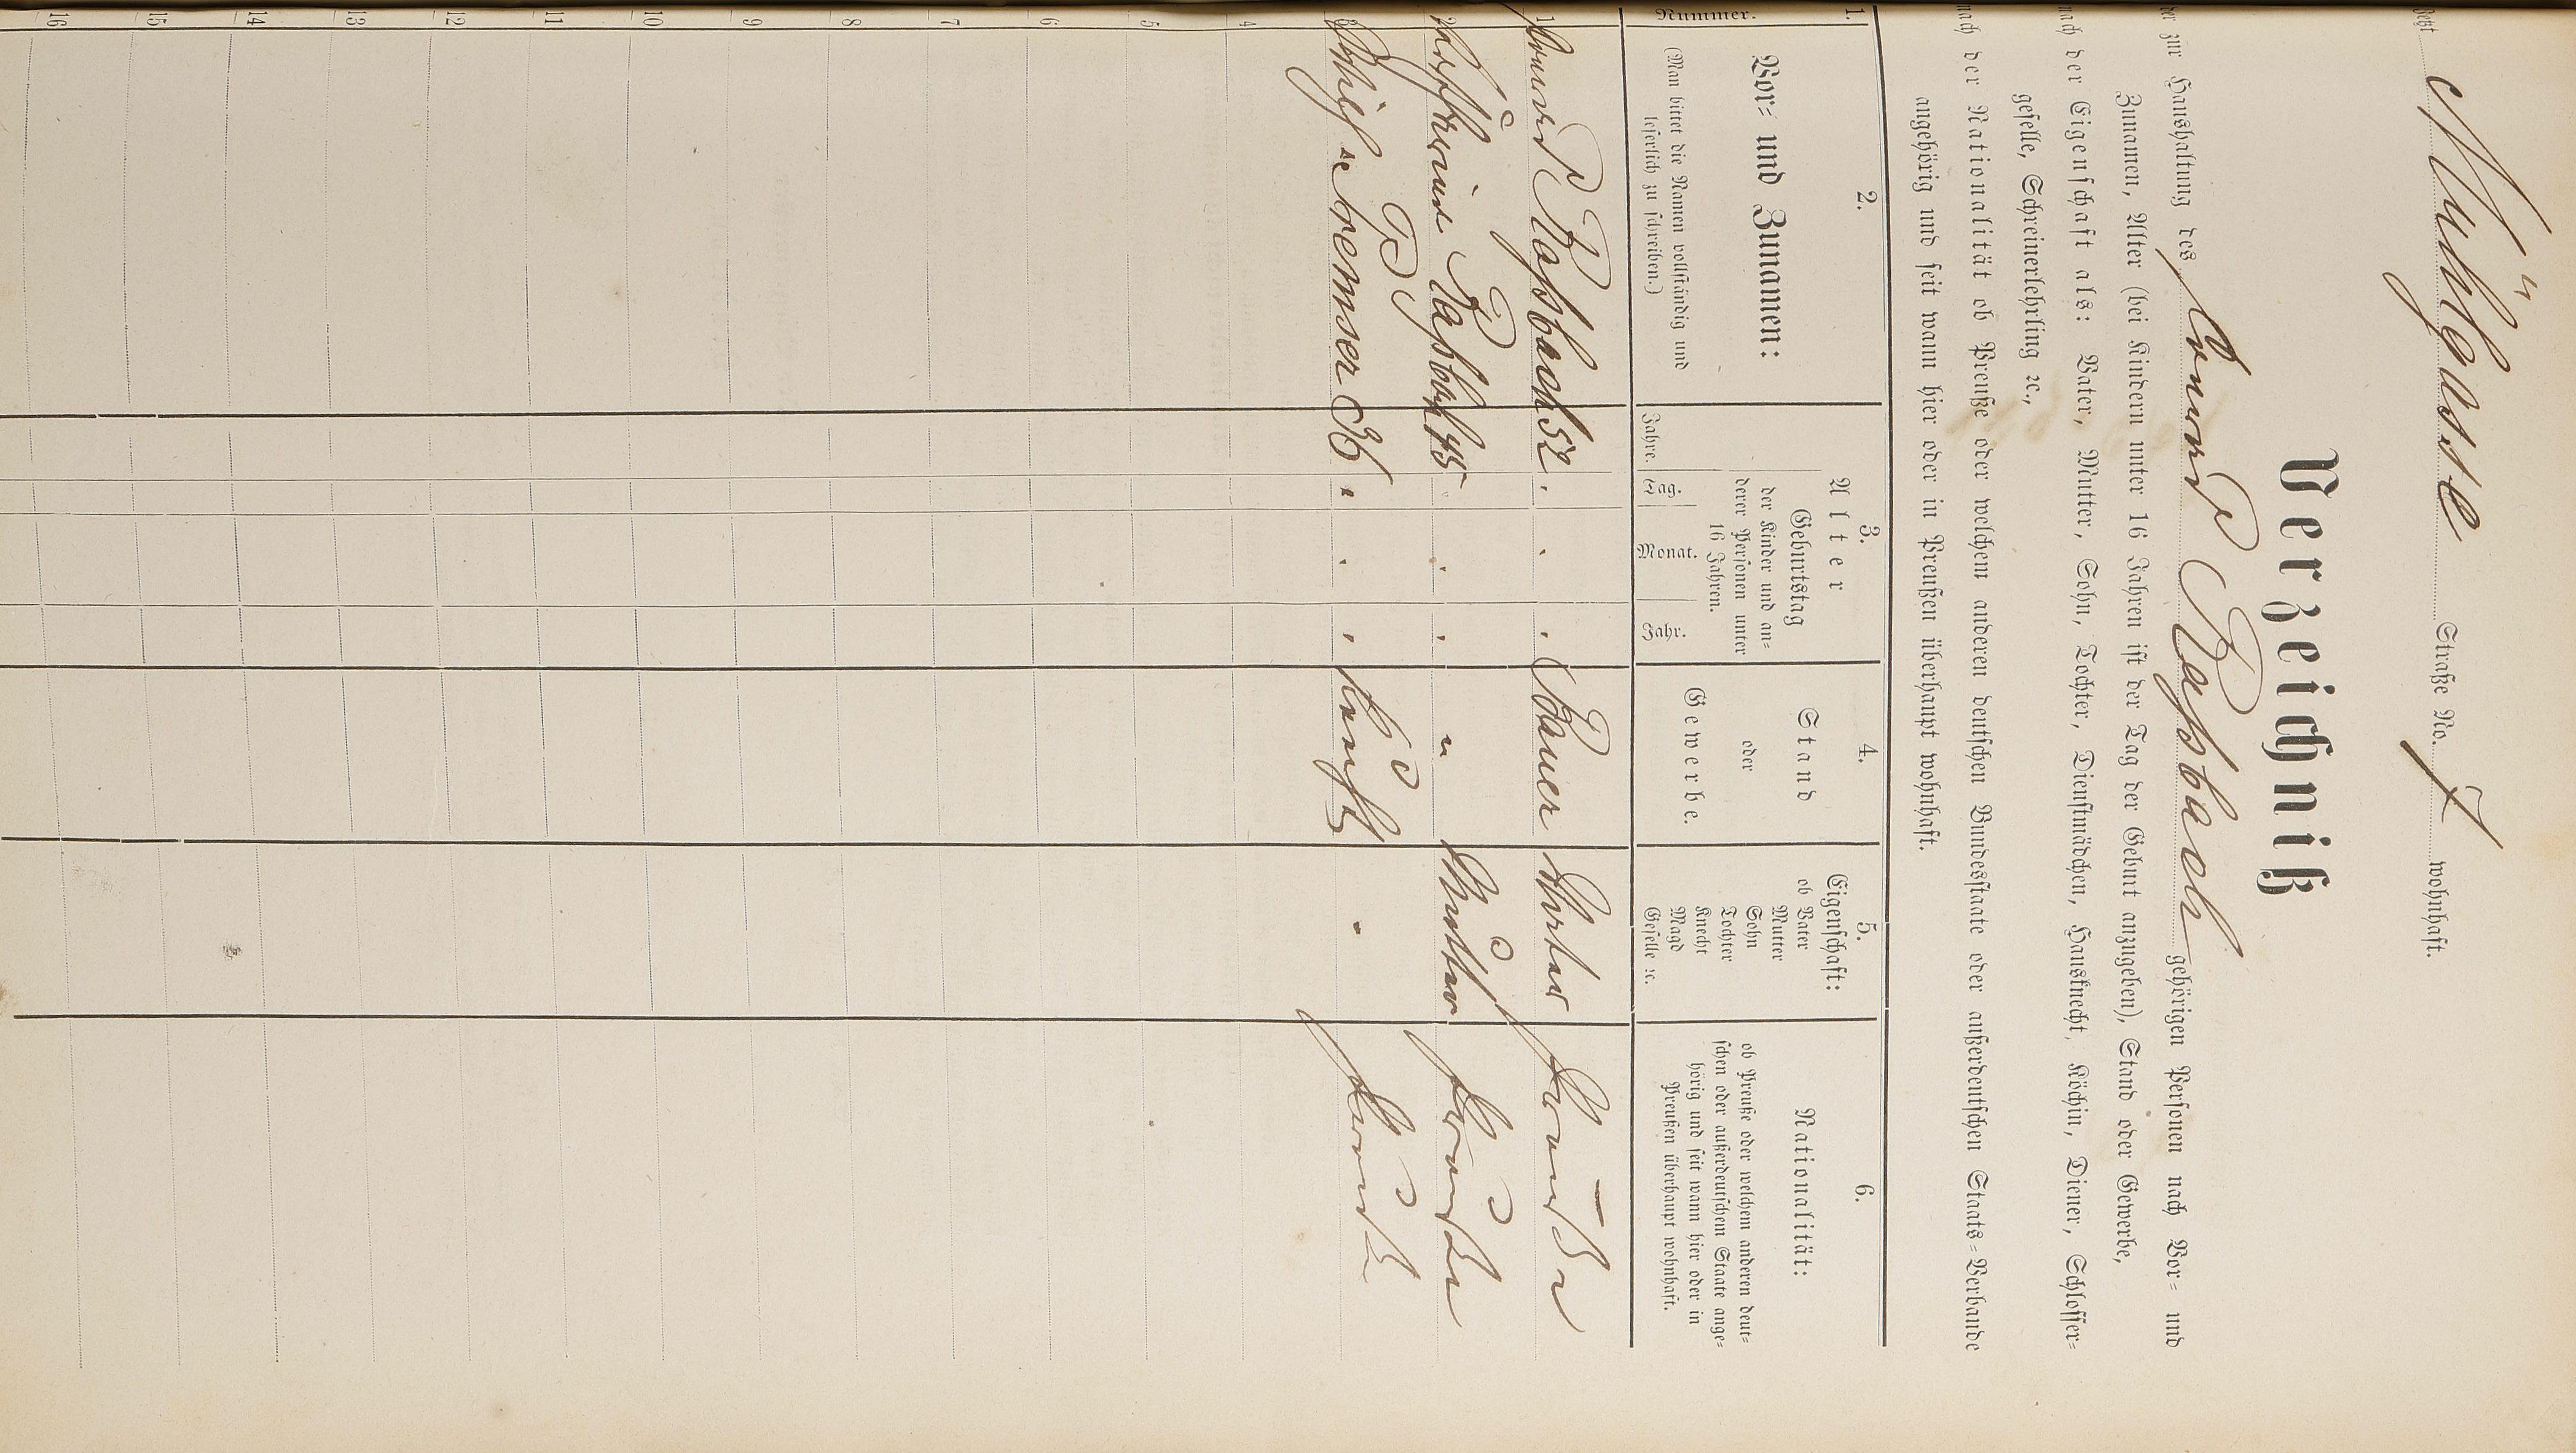 Jetzt Mühlgasse Straße No. 7 wohnhaft.
Verzeichniß
der zur Haushaltung des Conrad Raßbach gehörigen Personen nach Vor- und
Zunamen, Alter (bei Kindern unter 16 Jahren ist der Tag der Geburt anzugeben), Stand oder Gewerbe,
nach der Eigenschaft als: Vater, Mutter, Sohn, Tochter, Dienstmädchen, Hausknecht, Köchin, Diener, Schlosser-
geselle, Schreinerlehrling ꝛc.,
nach der Nationalität ob Preuße oder welchem anderen deutschen Bundesstaate oder außerdeutschen Staats-Verbande
angehörig und seit wann hier oder in Preußen überhaupt wohnhaft.
1. 2. 3. 4. 5. 6.
Nummer.
Vor- und Zunamen:
(Man bittet die Namen vollständig und
leserlich zu schreiben.)
Alter
Jahre.
Geburtstag
der Kinder und an-
derer Personen unter
16 Jahren.
Tag. Monat. Jahr.
Stand
oder
Gewerbe.
Eigenschaft:
ob Vater
Mutter
Sohn
Tochter
Knecht
Magd
Geselle ꝛc.
Nationalität:
ob Preuße oder welchem anderen deut-
schen oder außerdeutschem Staate ange-
hörig und seit wann hier oder in
Preußen überhaupt wohnhaft.
1 Conrad Raßbach 52 . . . Bauer Vater Preuße
2 Raßbach 45 . . " Mutter Preuße
3 Bremser 36 . . . Knecht . Preuße
4
5
6
7
8
9
10
11
12
13
14
15
16